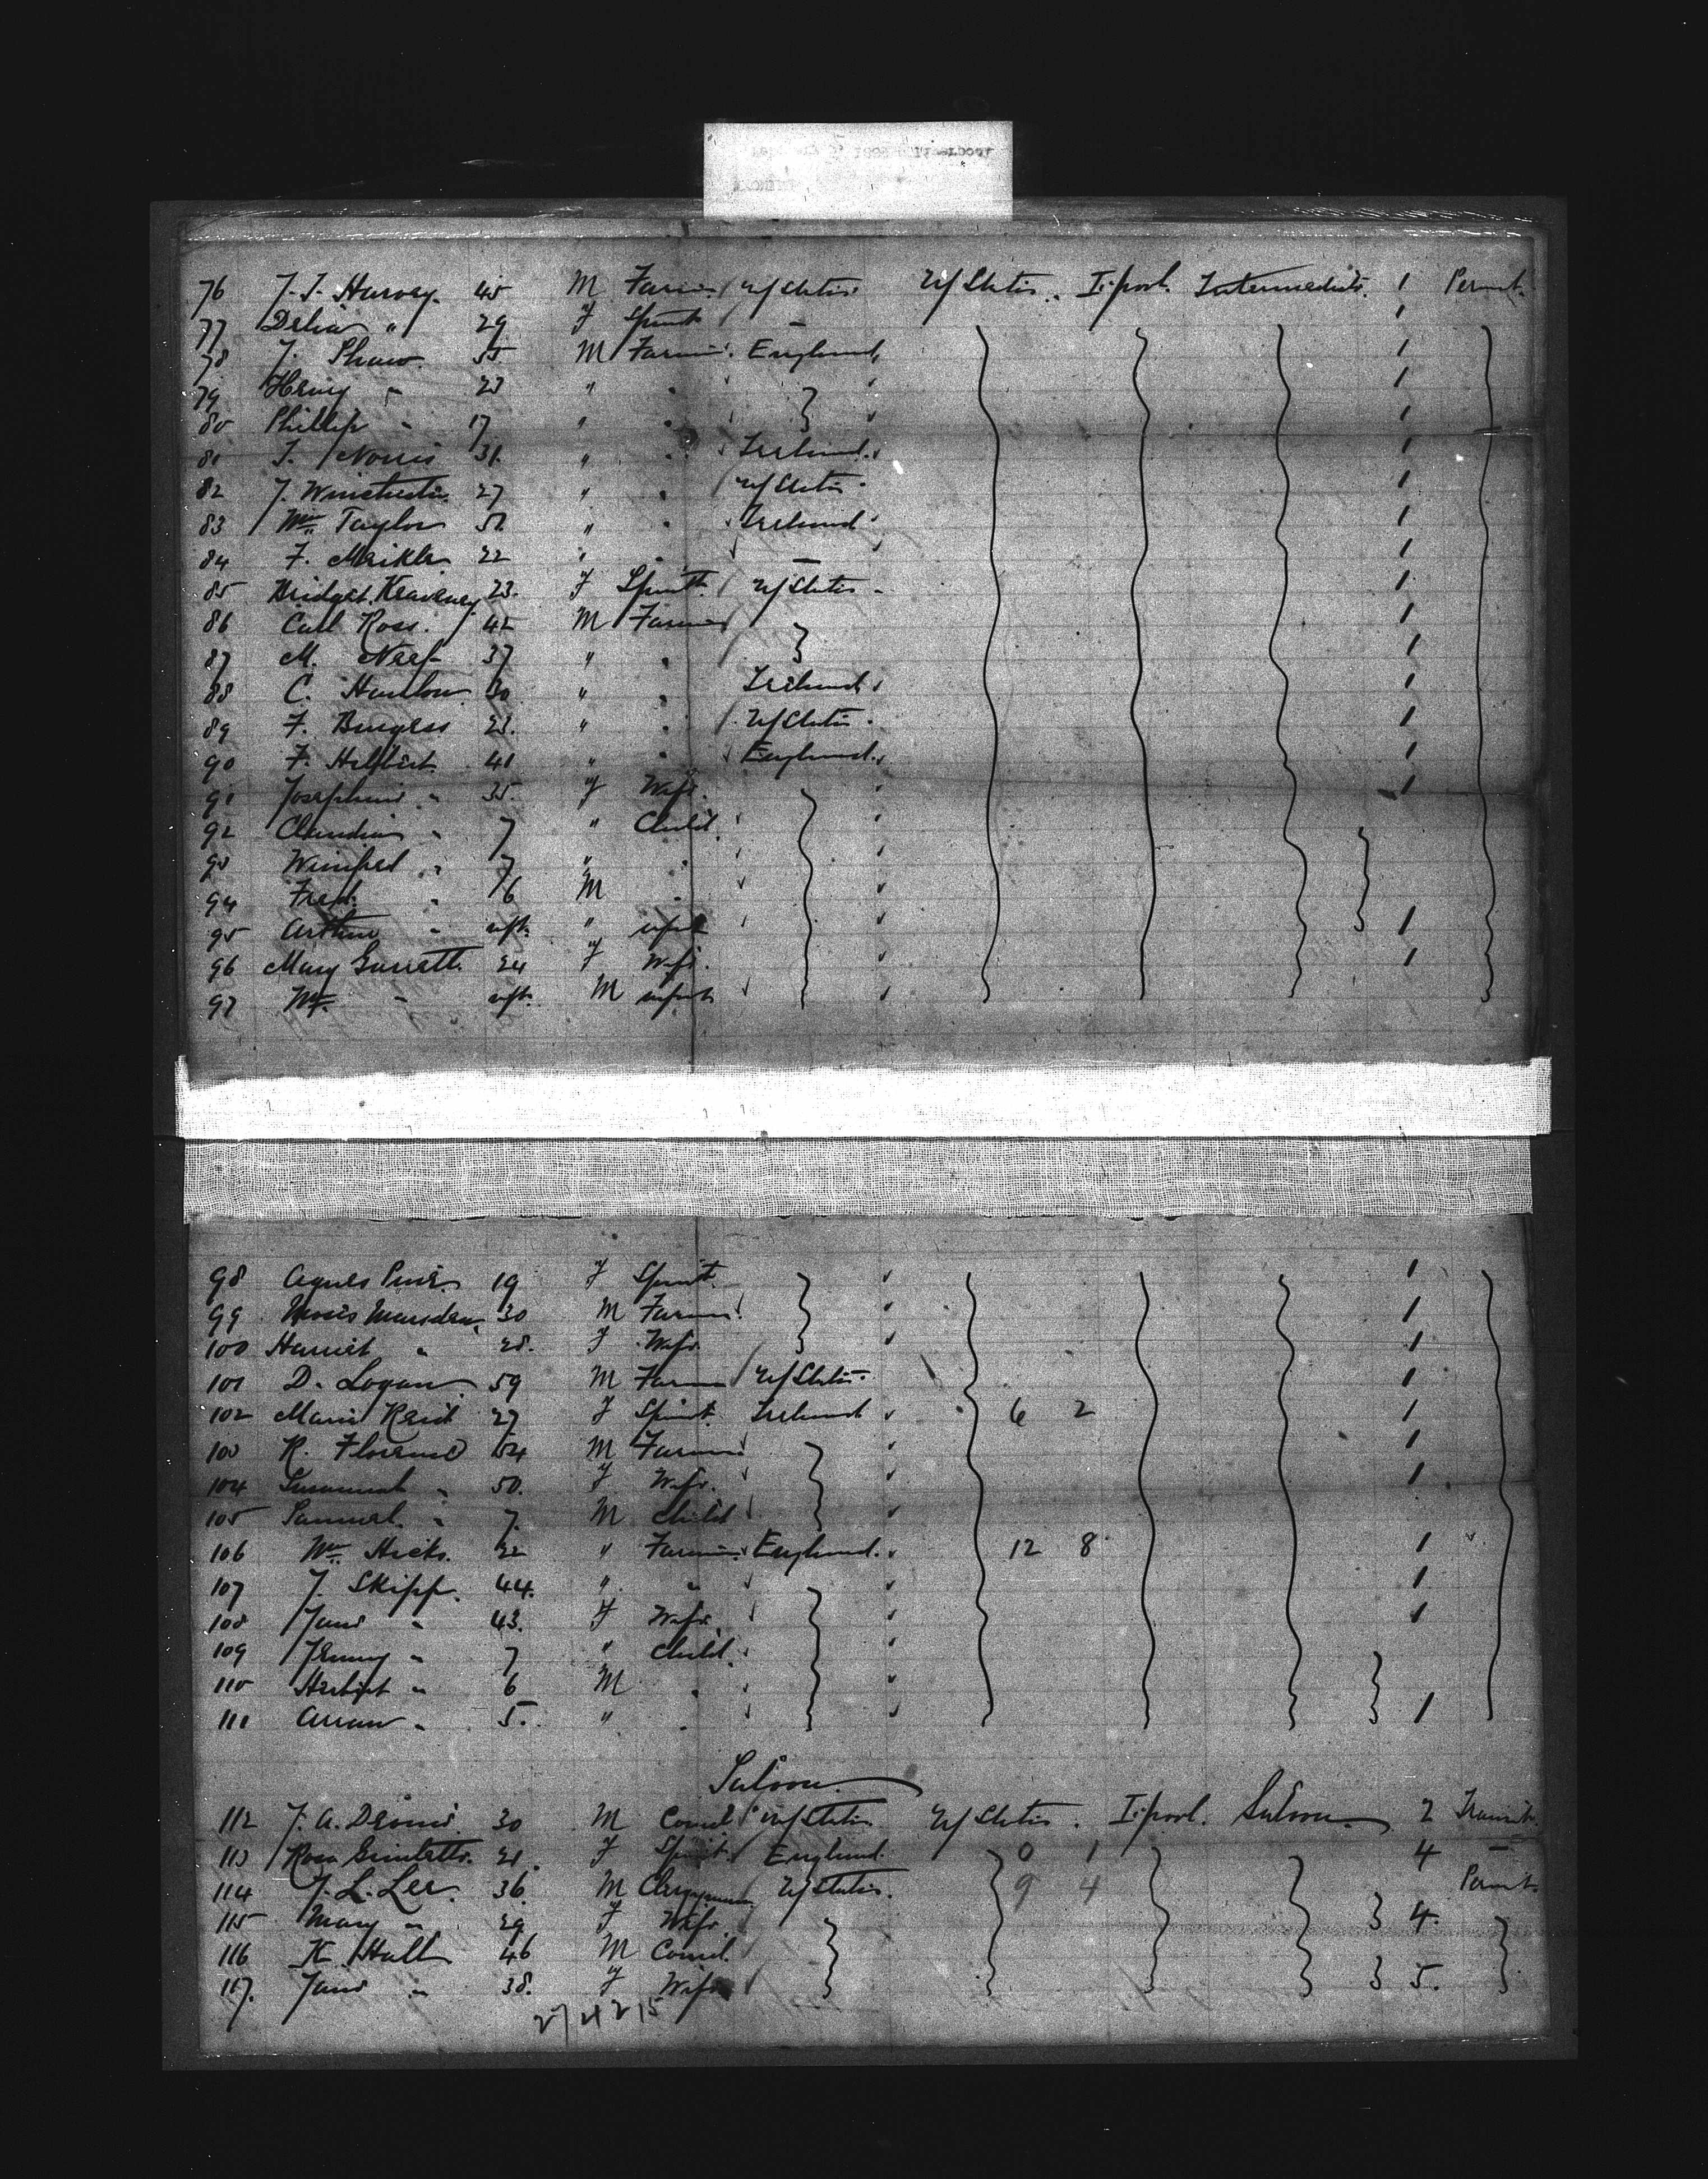 76 J. J. Harvey. 45 M Farmer U/States U/States. L.pool. Intermediate. 1 Permt.
77 Delia " 29 F Spinst. — 1
78 J. Shaw. 55 M Farmer. England 1
79 Henry " 23 " " 1
80 Phillip " 17 " " 1
81 J. Norris 31. " " Ireland. 1
82 J. Winchester. 27 " " U/States. 1
83 Wm Taylor " " Ireland 1
84 F. Meikle. 22 " " — 1
85 Bridget Keaveney 23. F Spinst. U/States 1
86 Carl Ross. 42 M Farmer 1
87 M. Neef 37 " " 1
88 C. Hanlon 30 " " Ireland 1
89 F. Burgess 23. " " U/States. 1
90 F. Halbert. 41 " " England. 1
91 Josephine " 35. F Wife. 1
92 Claudia " 7 " Child.
93 Winifred " 7 " "
94 Fred. " 6 M "
95 Arthur " inft. " infant 1
96 Mary Garratt. 24 F Wife. 1
97 Wm. " inft. M infant
98 Agnes 19 F Spinst. 1
99 Moses Marsden. 30 M Farmer. 1
100 Harriet " 28. F Wife. 1
101 D. Logan. 59 M Farmer U/States. 1
102 Marie Reid 27. F Spinst. Ireland 6 2 1
103 R. Florence 54 M Farmer 1
104 Susannah " 50. F Wife. 1
105 Samuel. " 7. M Child
106 Wm Hicks. 22 " Farmer. England. 12 8 1
107 J. Skipp. 44. " " 1
108 Jane " 43. F Wife. 1
109 Jenny " 7 " Child.
110 Herbert " 6 M "
111 " 5. " " 1
Saloon.
112 J. A. Dennis. 30 M Comcl U/States U/States. L.pool. Saloon. 2 Transit.
113 Rosa 21. F Spinst. England. 0 1 4 —
114 J. L. Lee. 36. M Clergyman U/States. 9 4 Permt.
115 Mary " 29 F Wife. 4.
116 K. Hall 46 M Comcl.
117. Jane " 38. F Wife 5.